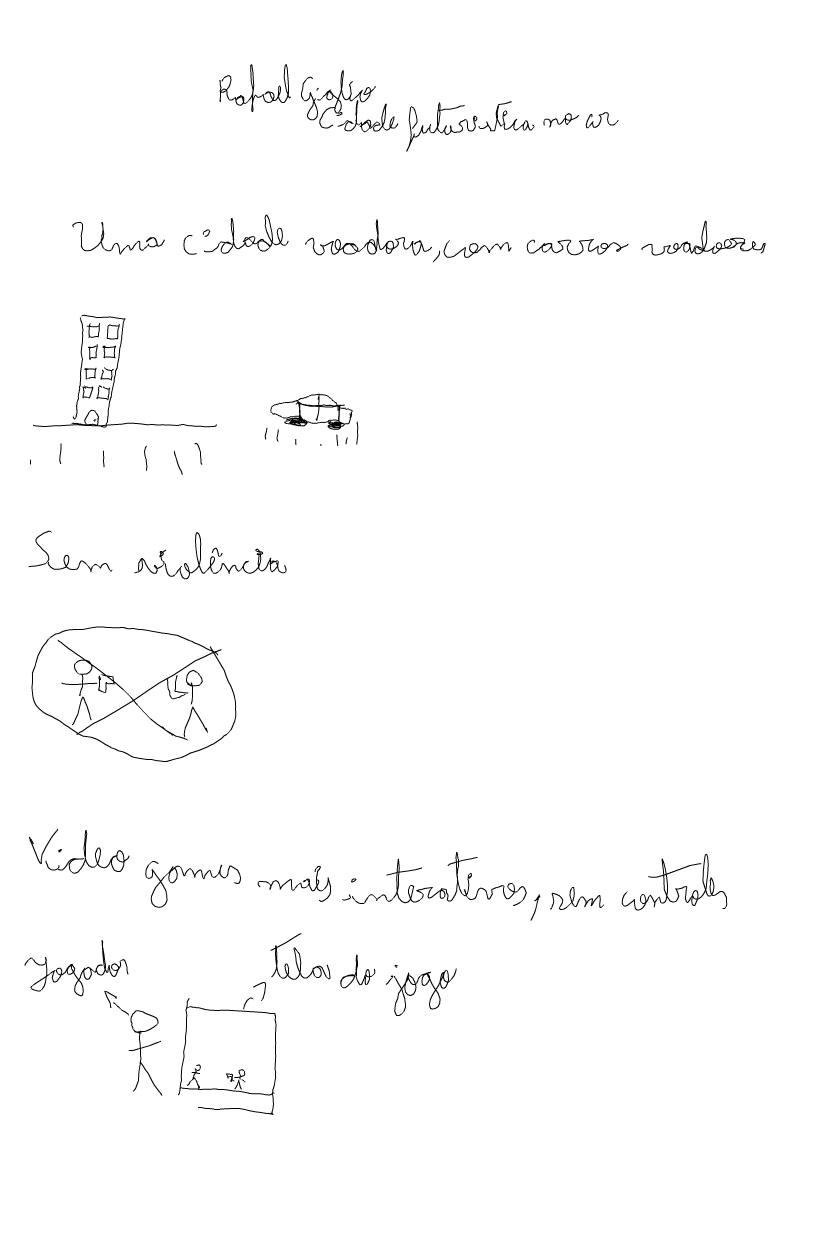 Rafael Giglio
Cidade futurística no ar
Uma cidade voadora, com carros voadores
Sem violência
Video games mais interativos, sem controles
Jogador
tela do jogo